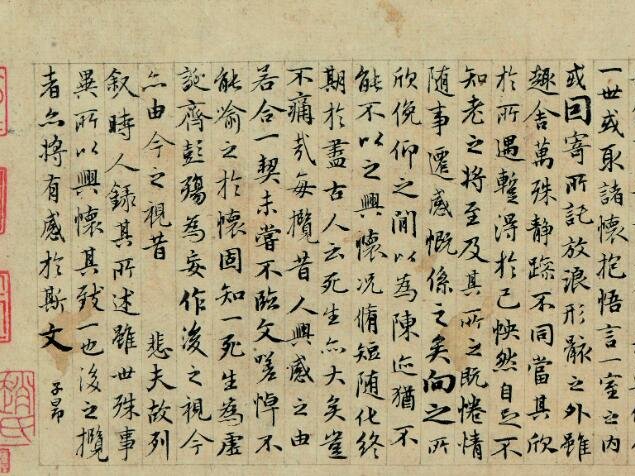 一世或取諸懷抱悟言一室之内
或因寄所託放浪形骸之外雖
趣舍萬殊静躁不同當其欣
於所遇蹔得於己怏然自足不
知老之將至及其所之既惓情
随事遷感慨係之矣向之所
欣俛仰之間以為陳迹猶不
能不以之興懷况脩短随化終
期於盡古人云死生亦大矣豈
不痛哉每攬昔人興感之由
若合一契未嘗不臨文嗟悼不
能喻之於懷固知一死生為虚
誕齊彭殤為妄作後之視今
亦由今之視昔 悲夫故列
叙時人録其所述雖世殊事
異所以興懷其致一也後之攬
者亦將有感於斯文 子昂
趙氏